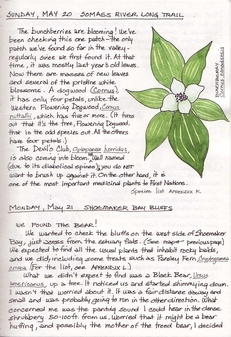 SUNDAY, MAY 20 SOMASS RIVER LONG TRAIL
The bunchberries are blooming! We've
been checking this one patch - the only
patch we've found so far in the valley -
regularly since we first found it. At that
time, it was mostly last year's old leaves.
Now there are masses of new leaves
and several of the pristine white
blossoms. A dogwood (Cornus),
it has only four petals, unlike the
Western Flowering Dogwood, Cornus
nuttallii, which has five or more. (It turns
out that it's the tree, Flowering Dogwood,
that is the odd species out. All the others
have four petals.)
The Devil's Club, Oplopanax horridus,
is also coming into bloom. Well named
(due to its diabolical spines), you do not
want to brush up against it. On the other hand, it is
one of the most important medicinal plants to First Nations.
Species list Appendix K.
MONDAY, MAY 21 SHOEMAKER BAY BLUFFS
WE FOUND THE BEAR!
We wanted to check the bluffs on the west side of Shoemaker
Bay, just across from the estuary flats. (See map - previous page)
We expected to find all the usual plants that inhabit rocky balds,
and we did, including some treats such as Parsley Fern,
(For the list, see Appendix L.)
What we didn't expect to find was a Black Bear, Ursus
americanus, up a tree. It noticed us and started shimmying down.
I wasn't that worried about it. It was a fair distance away and
small and was probably going to run in the other direction. What
concerned me was the panting sound I could hear in the dense
shrubbery 50-100ft from us. Worried that it might be a bear
huffing, and possibly the mother of the treed bear, I decided